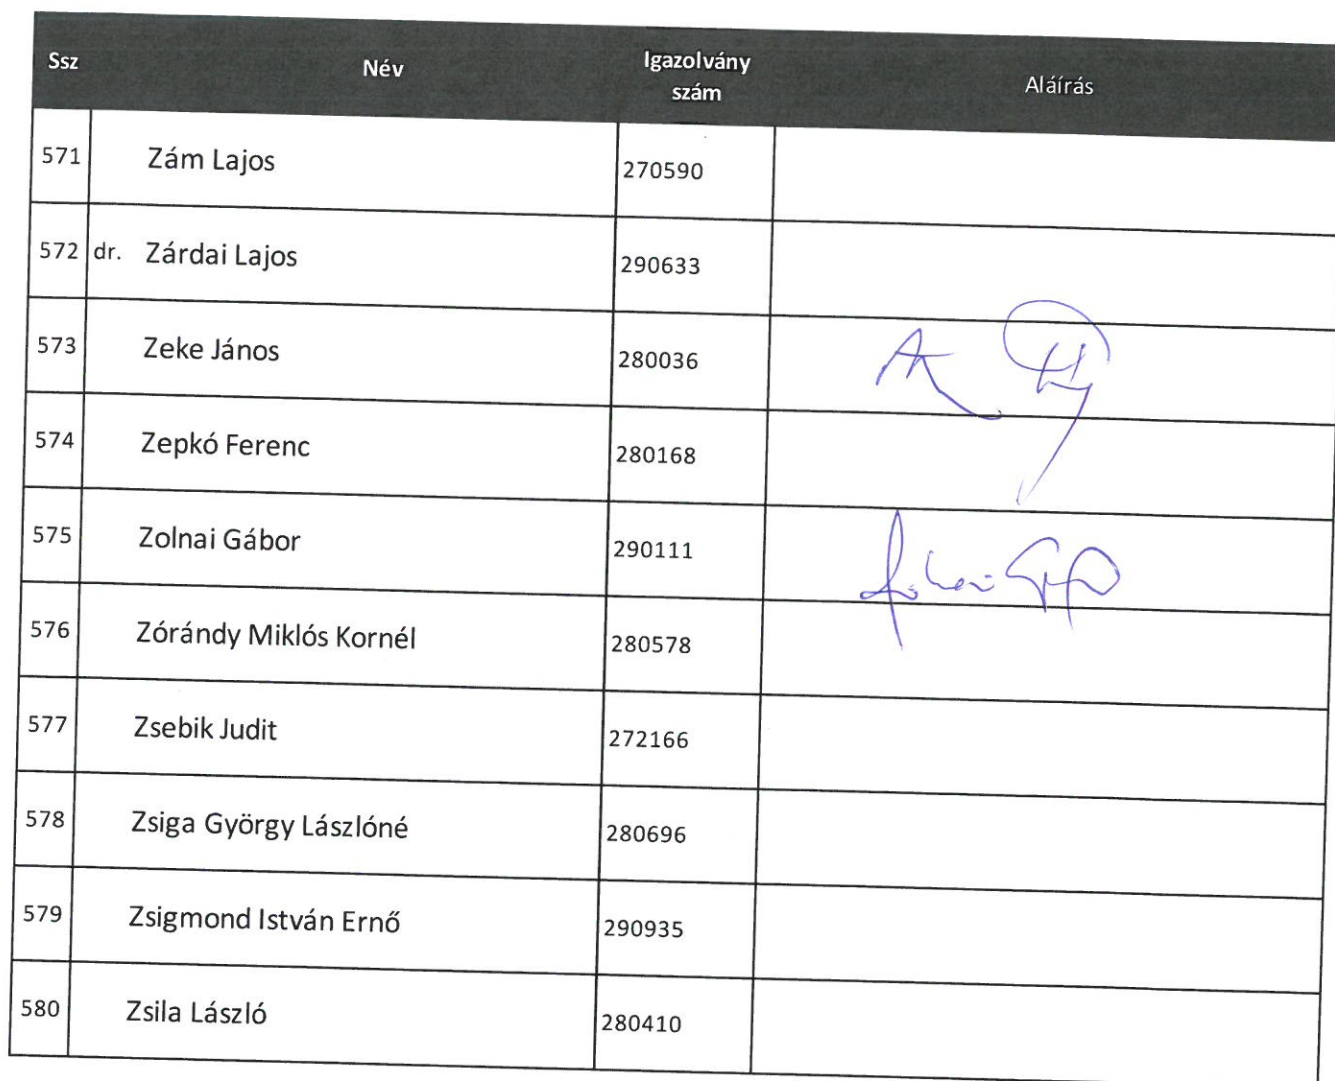 Ssz Név Igazolvány szám Aláírás
571 Zám Lajos 270590
572 dr. Zárdai Lajos 290633
573 Zeke János 280036
574 Zepkó Ferenc 280168
575 Zolnai Gábor 290111
576 Zórándy Miklós Kornél 280578
577 Zsebik Judit 272166
578 Zsiga György Lászlóné 280696
579 Zsigmond István Ernő 290935
580 Zsila László 280410